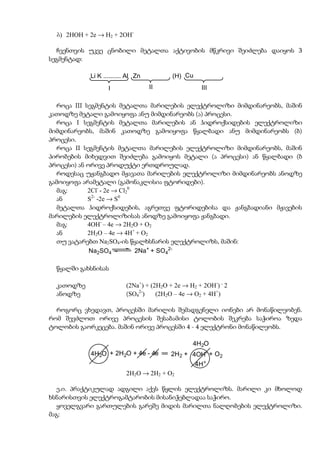 ბ) 2HOH + 2e → H₂ + 2OH⁻
ჩვენთვის უკვე ცნობილი მეტალთა აქტივობის მწკრივი შეიძლება დაიყოს 3
სეგმენტად
Li K Al Zn (H) Cu
I II III
როცა III სეგმენტის მეტალთა მარილების ელექტროლიზი მიმდინარეობს, მაშინ
კათოდზე მეტალი გამოიყოფა ანუ მიმდინარეობს (ა) პროცესი.
როცა I სეგმენტის მეტალთა მარილების ან ჰიდროქსიდების ელექტროლიზი
მიმდინარეობს, მაშინ კათოდზე გამოიყოფა წყალბადი ანუ მიმდინარეობს (ბ)
პროცესი.
როცა II სეგმენტის მეტალთა მარილების ელექტროლიზი მიმდინარეობს, მაშინ
პირობების მიხედვით შეიძლება გამოიყოს მეტალი (ა პროცესი) ან წყალბადი (ბ
პროცესი) ან ორივე პროდუქტი ერთდროულად.
როდესაც უჟანგბადო მჟავათა მარილების ელექტროლიზი მიმდინარეობს ანოდზე
გამოიყოფა არამეტალი (გამონაკლისია ფტორიდები).
მაგ: 2Cl⁻ - 2e → Cl₂⁰
ან S²⁻ -2e → S⁰
მეტალთა ჰიდროქსიდების, აგრეთვე ფტორიდებისა და ჟანგბადიანი მჟავების
მარილების ელექტროლიზისას ანოდზე გამოიყოფა ჟანგბადი.
მაგ: 4OH⁻ – 4e → 2H₂O + O₂
ან 2H₂O – 4e → 4H⁺ + O₂
თუ ვატარებთ Na₂SO₄-ის წყალხსნარის ელექტროლიზს, მაშინ:
Na₂SO₄ ⇌ 2Na⁺ + SO₄²⁻
წყალში გახსნისას
კათოდზე (2Na⁺) + (2H₂O + 2e → H₂ + 2OH⁻) · 2
ანოდზე (SO₄²⁻) (2H₂O – 4e → O₂ + 4H⁺)
როგორც ვხედავთ, პროცესში მარილის შემადგენელი იონები არ მონაწილეობენ.
რომ შევძლოთ ორივე პროცესის შესაბამისი ტოლობის შეკრება საჭიროა ზედა
ტოლობის გაორკეცება. მაშინ ორივე პროცესში 4 - 4 ელექტრონი მონაწილეობს.
4H₂O
4H₂O + 2H₂O + 4e - 4e = 2H₂ + 4OH⁻ + O₂
4H⁺
2H₂O → 2H₂ + O₂
ე.ი. პრაქტიკულად ადგილი აქვს წყლის ელექტროლიზს. მარილი კი მხოლოდ
ხსნარისთვის ელექტროგამტარობის მისანიჭებლადაა საჭირო.
ყოველგვარი გართულების გარეშე მიდის მარილთა ნალღობების ელექტროლიზი.
მაგ: